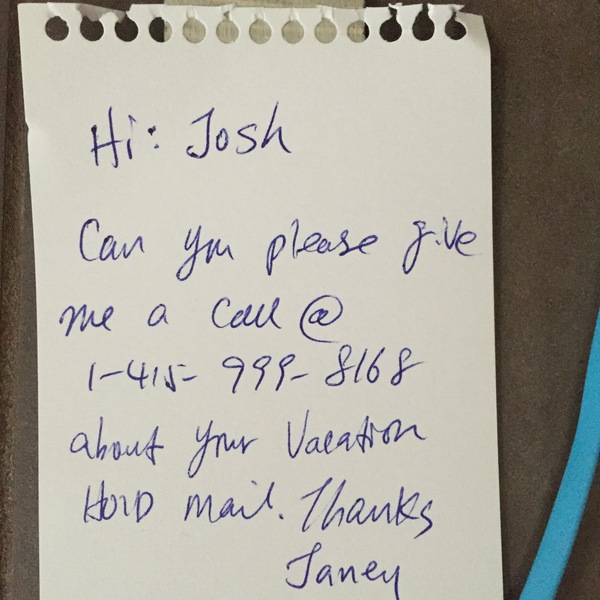 Hi: Josh
Can you please give
me a call @
1-415-999-8168
about your Vacation
HOlD mail. Thanks
Janey